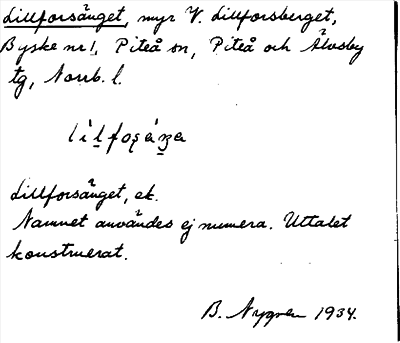 Lillforsänget, myr V. Lillforsberget,
Byske nr 1, Piteå sn, Piteå och Älvsby
tg, Norrb. l.
Lillforsänget, ek.
Namnet användes ej numera. Uttalet
konstruerat.
B. Nygren 1934.